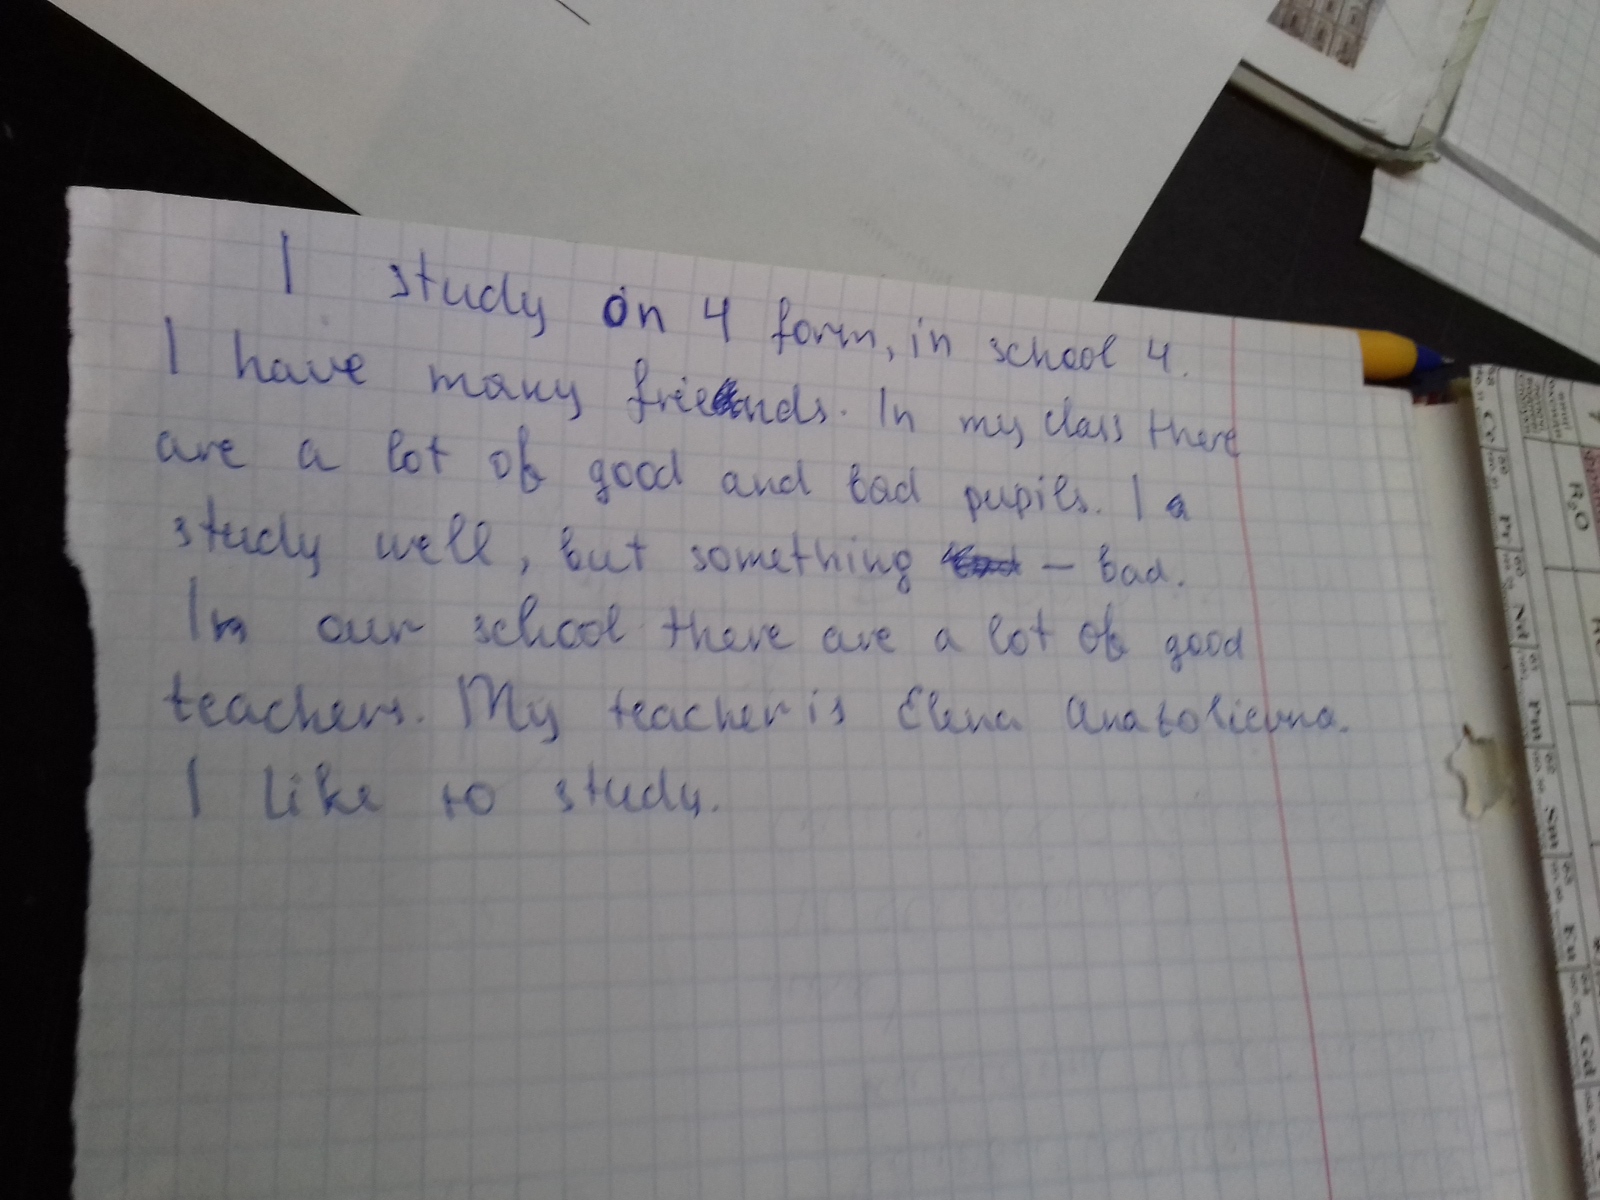 I study on 4 form, in school 4.
I have many friends. In my class there
are a lot of good and bad pupils. I a
study well, but something — bad.
In our school there are a lot of good
teachers. My teacher is Elena Anatolievna.
I like to study.
R₂O
Ce
Pr
Nd
Pm
Sm
Eu
Gd